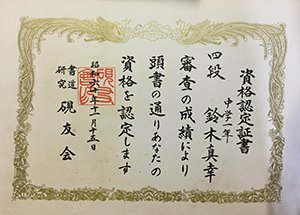 資格認定証書
中学二年
四段 鈴木真幸
審査の成績により
頭書の通りあなたの
資格を認定します
昭和六十年十一月十五日
書道研究 硯友会